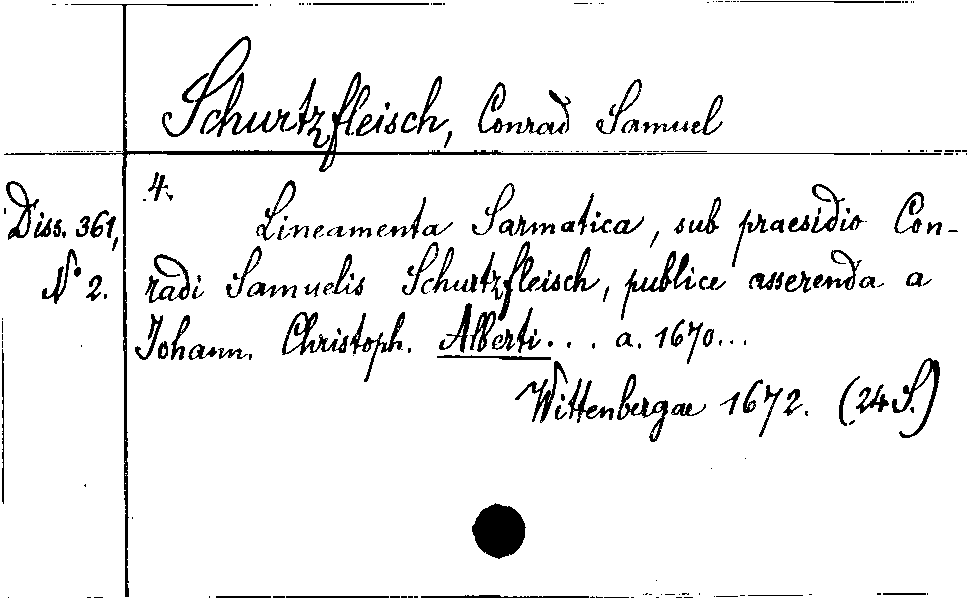 Schurtzfleisch, Conrad Samuel
Diss. 361,
N° 2.
4.
Lineamenta Sarmatica, sub praesidio Con-
radi Samuelis Schurtzfleisch, publice asserenda a
Johann. Christoph. Alberti... a. 1670...
Wittenbergae 1672. (24 S.)